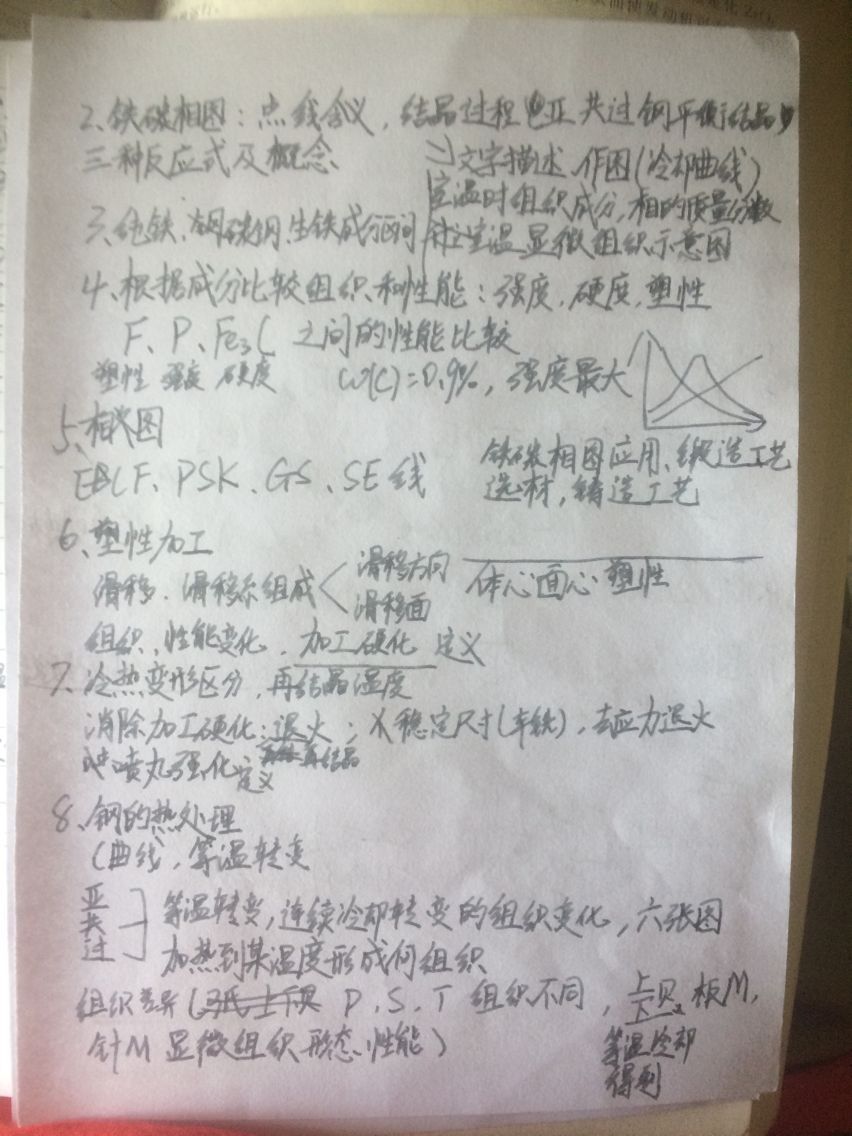 2、铁碳相图：点线含义，结晶过程 亚共过钢平衡结晶
三种反应式及概念
文字描述、作图(冷却曲线)
室温时组织成分，相的质量分数
室温显微组织示意图
3、纯铁、钢碳钢、生铁成分区间
4、根据成分比较组织和性能：强度，硬度，塑性
F、P、Fe3C 之间的性能比较
塑性 强度 硬度 W(C)=0.9%，强度最大
5、相图
铁碳相图应用、锻造工艺
选材，铸造工艺
ECF、PSK、GS、SE线
6、塑性加工
滑移、滑移系组成 滑移方向
滑移面
体心面心塑性
组织、性能变化，加工硬化 定义
7、冷热变形区分，再结晶温度
消除加工硬化：退火； 稳定尺寸(车铁)，去应力退火
再结晶
喷丸强化定义
8、钢的热处理
C曲线，等温转变
亚共过
等温转变，连续冷却转变的组织变化，六张图
加热到某温度形成何组织
组织差异( P、S、T 组织不同，上贝 下贝、板M，
针M 显微组织形态、性能)
等温冷却
得到